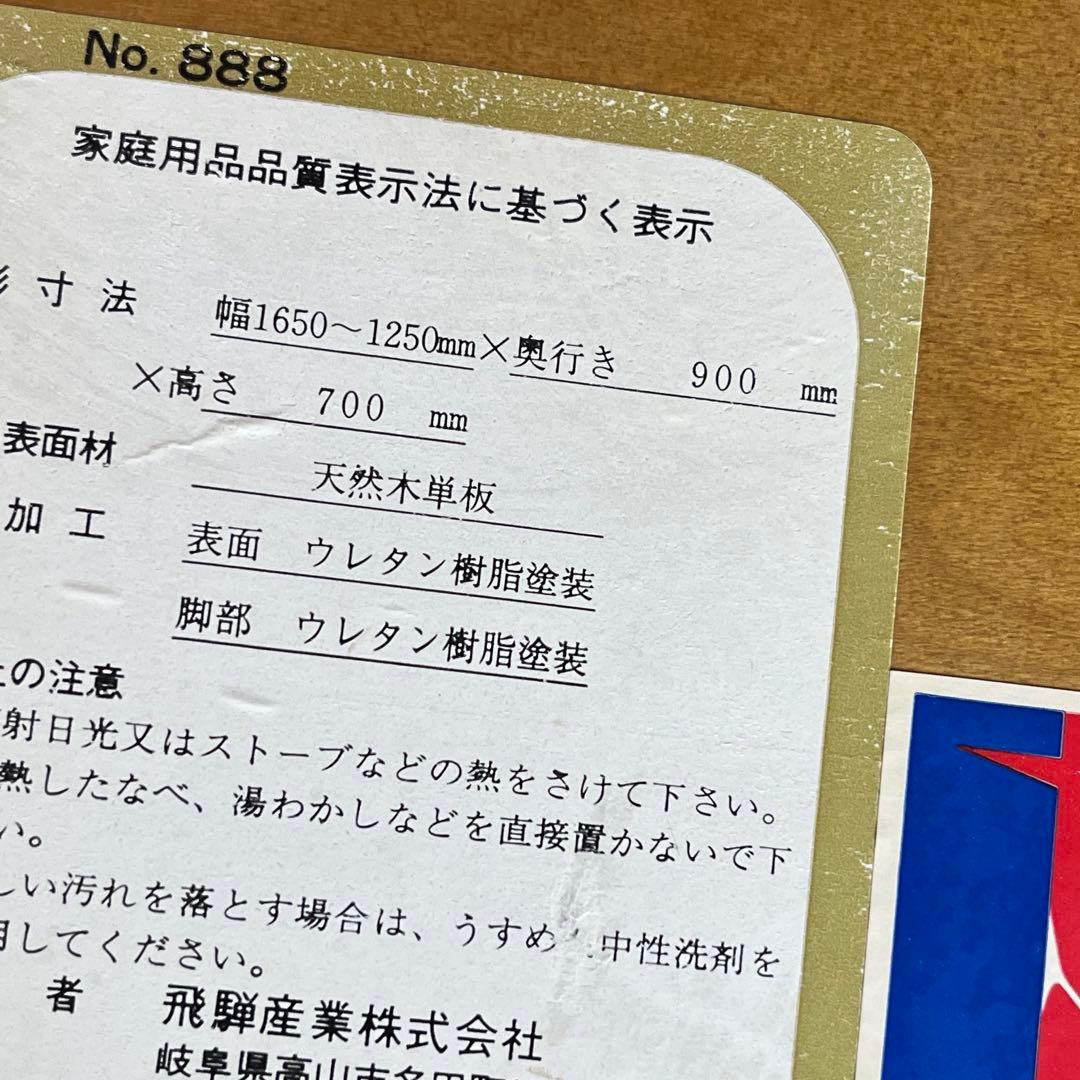 No. 888
家庭用品品質表示法に基づく表示
寸法 幅1650～1250mm×奥行き 900 mm
×高さ 700 mm
表面材 天然木単板
加工 表面 ウレタン樹脂塗装
脚部 ウレタン樹脂塗装
上の注意
射日光又はストーブなどの熱をさけて下さい。
熱したなべ、湯わかしなどを直接置かないで下
い。
しい汚れを落とす場合は、うすめ 中性洗剤を
用してください。
者 飛騨産業株式会社
岐阜県高山市